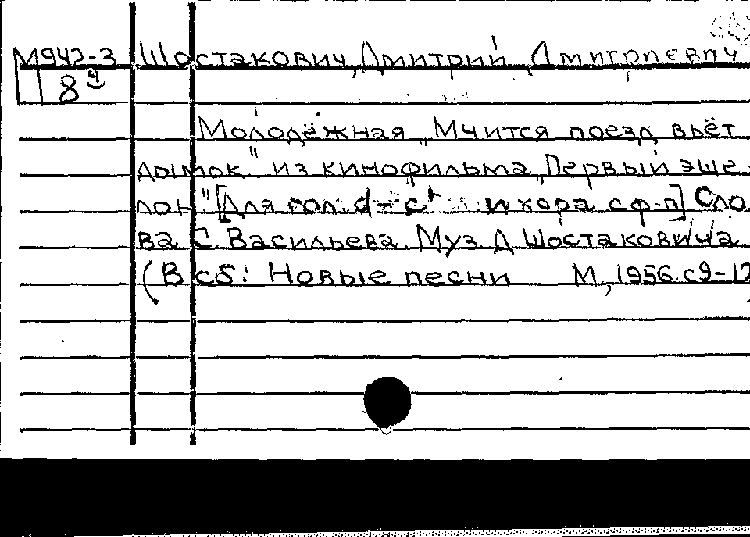 М942-3 Шостакович, Дмитрий Дмитриевич
8
Молодёжная „Мчится поезд, вьёт
дымок" из кинофильма „Первый эше-
лон" [Для гол. d – c и хора с ф-п] Сло
ва С. Васильева. Муз. Д. Шостаковича
(В сб: Новые песни М, 1956. с 9-12